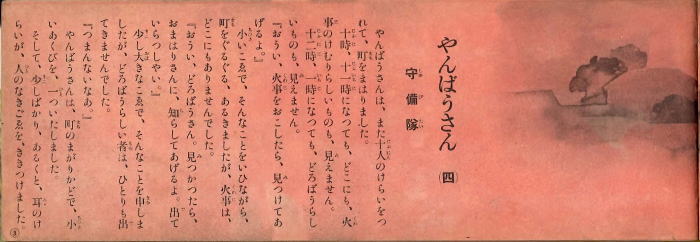 やんばうさん (四)
守備隊
やんばうさんは、また十人のけらいをつ
れて、町をまはりました。
十時、十一時になつても、どこにも、火
事のけむりらしいものも、見えません。
十二時、一時になつても、どろばうらし
いものも、見えません。
『おうい、火事をおこしたら、見つけてあ
げるよ。』
小いこゑで、そんなことをいひながら、
町をぐるぐる、あるきましたが、火事は、
どこにもありませんでした。
『おうい、どろばうさん。見つかつたら、
おまはりさんに、知らしてあげるよ。出て
いらつしやい。』
少し大きなこゑで、そんなことを申しま
したが、どろばうらしい者は、ひとりも出
てきませんでした。
『つまんないなあ。』
やんばうさんは、町のまがりかどで、小
いあくびを、一ついたしました。
そして、少しばかり、あるくと、耳のけ
らいが、人のなきごゑを、ききつけました。
③